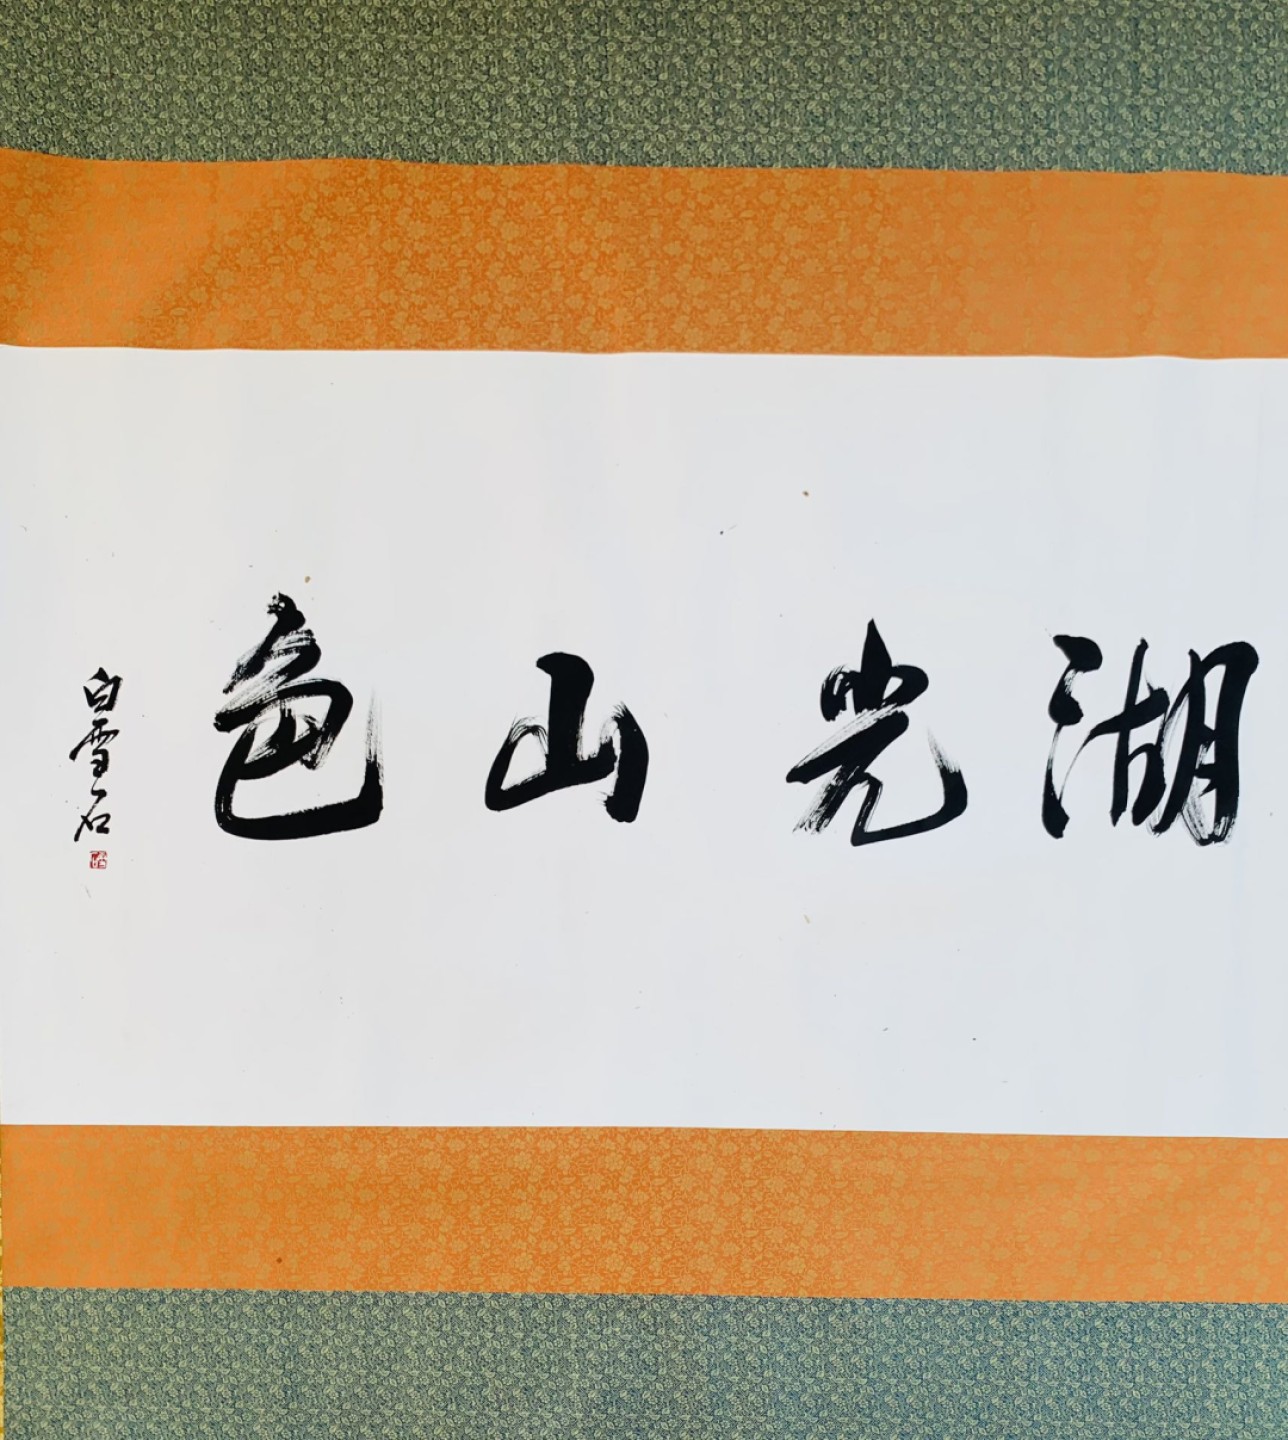 湖光山色
白雪石